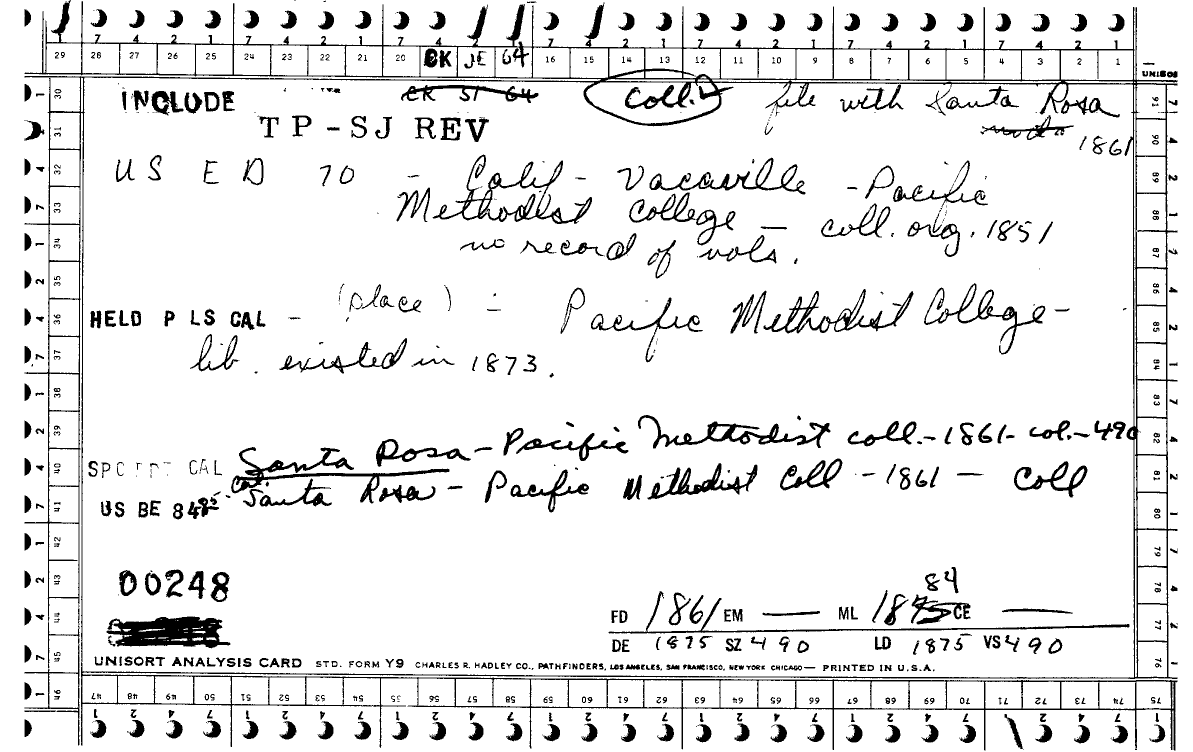 7 4 2 1 7 4 2 1 7 4 2 1 7 4 2 1 7 4 2 1 7 4 2 1
29 28 27 26 25 24 23 22 21 20 CK JE 64 16 15 14 13 12 11 10 9 8 7 6 5 4 3 2 1
INCLUDE CK 51 64 Coll. file with Santa Rosa
TP-SJ REV 1861
US ED 70 - Calif - Vacaville - Pacific
Methodist College - coll. org. 1851
no record of vols.
HELD P LS CAL - (place) - Pacific Methodist College -
lib. existed in 1873.
SPC RPT CAL Santa Rosa - Pacific Methodist coll. - 1861 - col. - 490
US BE 84 85 - Cal Santa Rosa - Pacific Methodist Coll - 1861 - Coll
00248
84
FD 1861 EM — ML 1875 CE —
DE 1875 SZ 490 LD 1875 VS 490
UNISORT ANALYSIS CARD STD. FORM Y9 CHARLES R. HADLEY CO., PATHFINDERS, LOS ANGELES, SAN FRANCISCO, NEW YORK CHICAGO — PRINTED IN U.S.A.
47 48 49 50 51 52 53 54 55 56 57 58 59 60 61 62 63 64 65 66 67 68 69 70 71 72 73 74 75